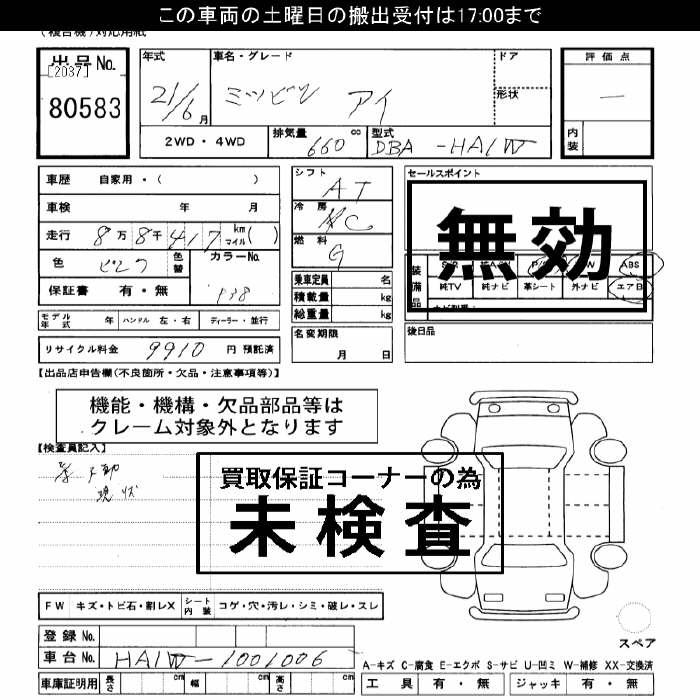 この車両の土曜日の搬出受付は17:00まで
出品No.
[2037]
80583
年式
21/6月
車名・グレード
ミツビシ アイ
ドア
形状
評価点
内装
2WD・4WD
排気量 660 cc
型式 DBA-HA1W
車歴 自家用・( )
車検 年 月
走行 8万8千417 km マイル( )
色
色替
カラーNo.
P38
保証書 有・無
シフト AT
冷房 AC
燃料 G
乗車定員 名
積載量 kg
総重量 kg
セールスポイント
無効
装備品
ABS
純TV 純ナビ 革シート 外ナビ エアB
モデル年式 年 ハンドル 左・右 ディーラー・並行
名変期限 月 日
後日品
リサイクル料金 9910 円 預託済
【出品店申告欄(不良箇所・欠品・注意事項等)】
機能・機構・欠品部品等は
クレーム対象外となります
【検査員記入】
不動
現状
買取保証コーナーの為
未検査
FW キズ・トビ石・割レX シート内装 コゲ・穴・汚レ・シミ・破レ・スレ
スペア
登録No.
車台No. HA1W-1001006
A-キズ C-腐食 E-エクボ S-サビ U-凹ミ W-補修 XX-交換済
車庫証明用 長さ cm 幅 cm 高さ cm
工具 有・無 ジャッキ 有・無